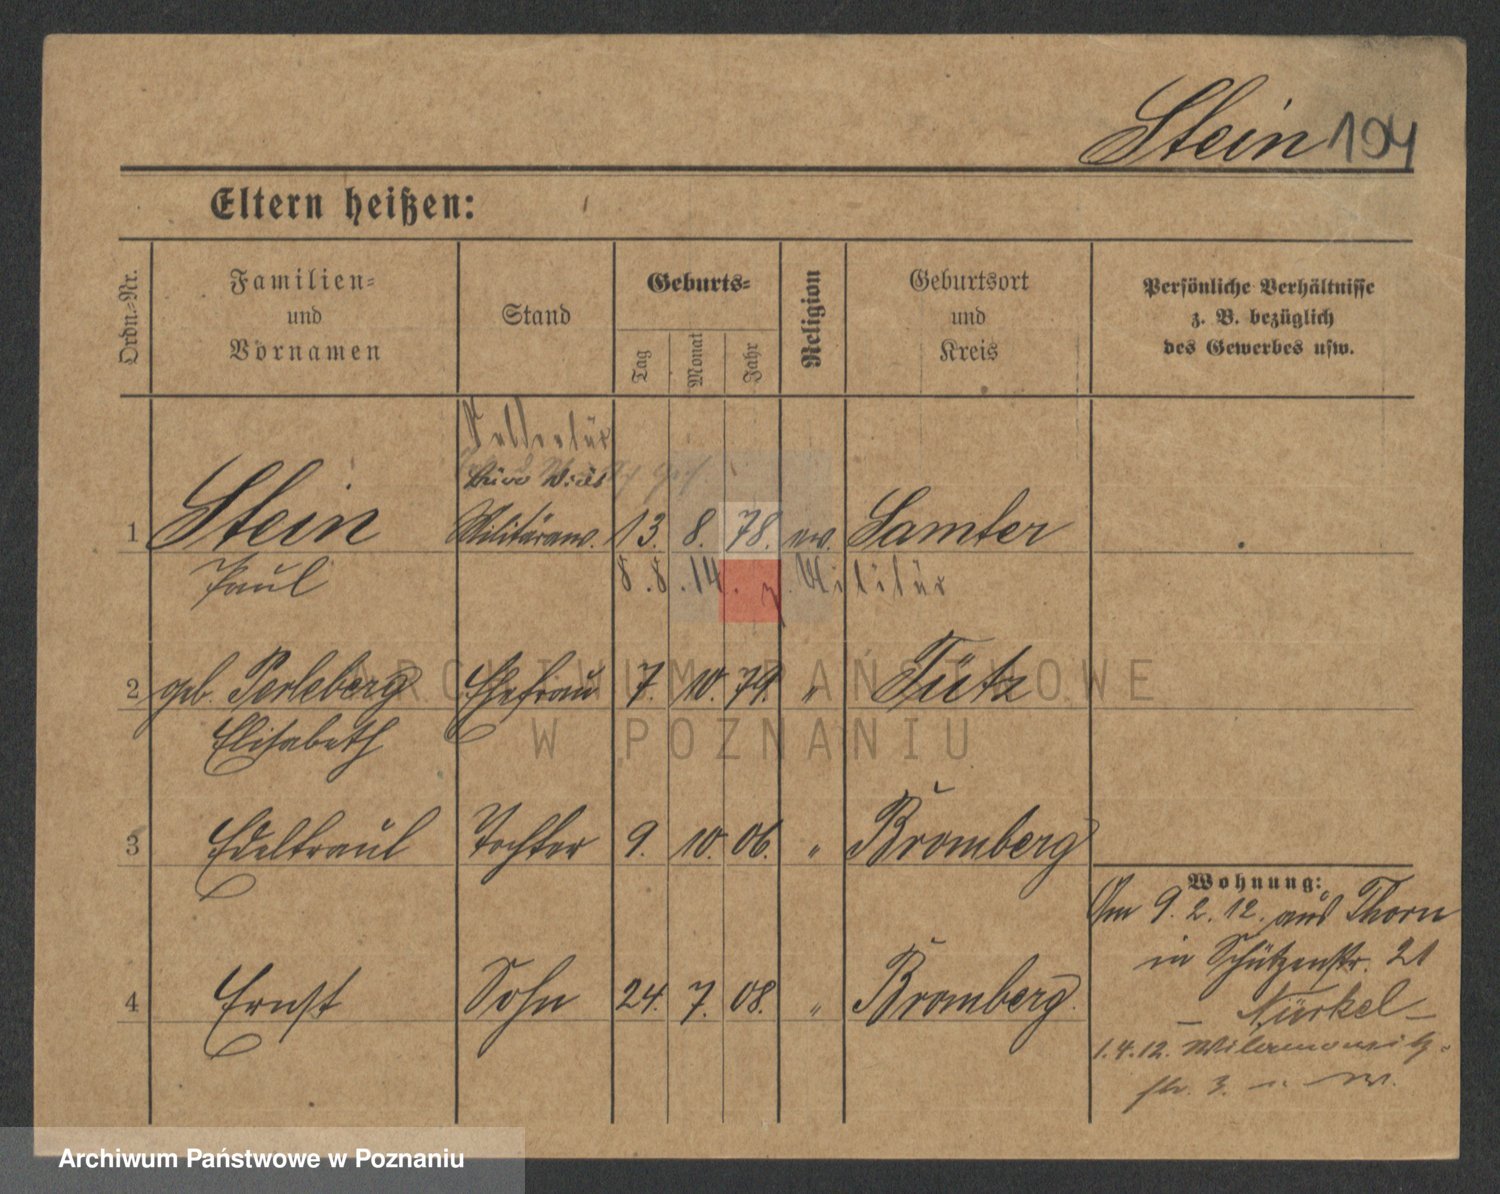 Stein 194
Eltern heißen:
Ordn.-Nr.
Familien-
und
Vornamen
Stand
Geburts-
Tag
Monat
Jahr
Religion
Geburtsort
und
Kreis
Persönliche Verhältnisse
z. B. bezüglich
des Gewerbes usw.
1 Stein Militäranw. 13. 8. 78. ev. Samter
Paul 8.8.14. z. Militär
2 geb. Perleberg Ehefrau 7. 10. 79. " Tütz
Elisabeth
3 Edeltraut Tochter 9. 10. 06. " Bromberg
4 Ernst Sohn 24. 7. 08. " Bromberg.
Wohnung:
Am 9. 2. 12. aus Thorn
in Schützenstr. 21
– Nürkel –
1.4.12.
str. 3.
ARCHIWUM PAŃSTWOWE
W POZNANIU
Archiwum Państwowe w Poznaniu